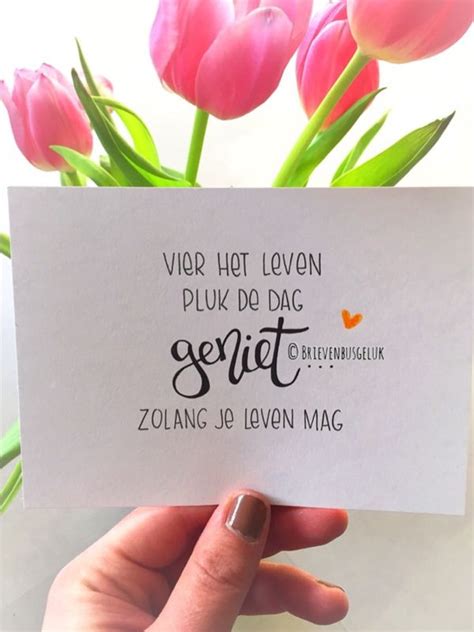 VIER HET LEVEN
PLUK DE DAG
geniet...
© BRIEVENBUSGELUK
ZOLANG JE LEVEN MAG